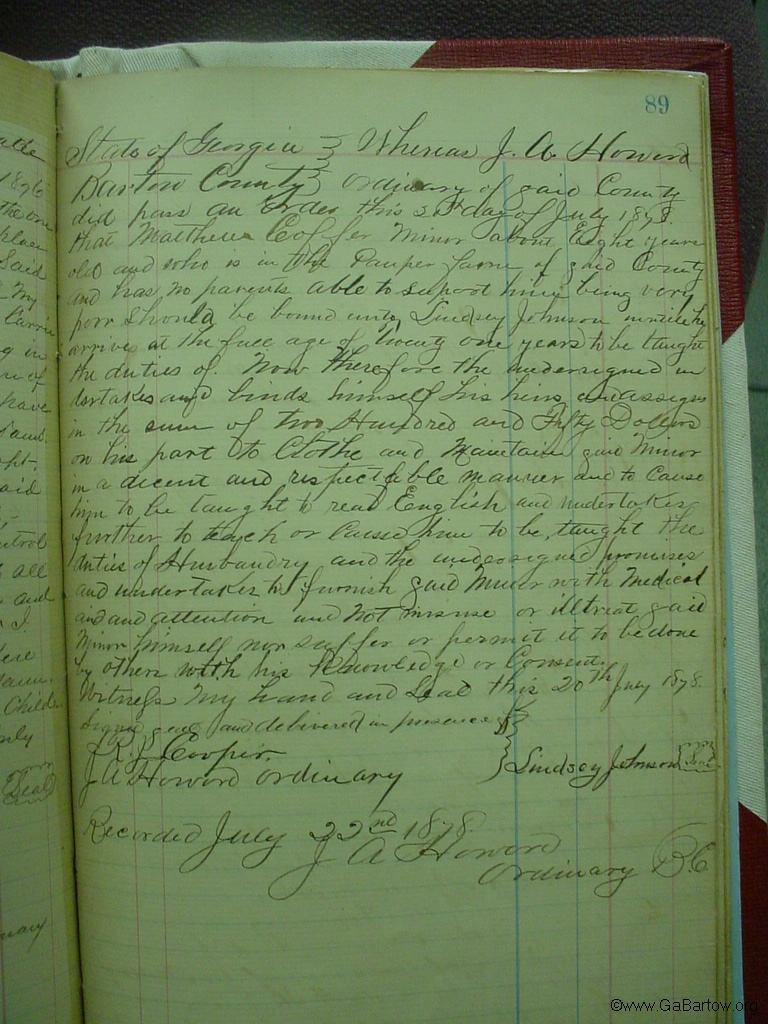 89
State of Georgia } Whereas J. A. Howard
Bartow County } ordinary of said County
did pass an order this day of July 1878.
that Matthew Coffer Minor about Eight years
old and who is in the Pauper farm of said County
and has no parents able to suport him being very
porr should be bound unto Lindsey Johnson untill he
arrives at the full age of twenty one years to be taught
the duties of. Now therefore the undersigned un
dertakes and binds himself his heirs and assigns
in the sum of two Hundred and Fifty Dollars
on his part to Clothe and Maintain said Minor
in a decent and respectable manner and to Cause
him to be taught to read English and undertakes
further to teach or Cause him to be taught the
duties of Husbandry and the undersigned promises
and undertakes to furnish said Minor with Medical
aid and attention and Not misuse or illtreat said
Minor himself nor suffer or permit it to be done
by others with his Knowledge or Consent.
Witness My hand and Seal this 20th July 1878.
and delivered in presence of
Cooper.
J A Howard ordinary } Lindsey Johnson Seal
Recorded July 22nd 1878.
J A Howard
Ordinary B.C.
©www.GaBartow.org